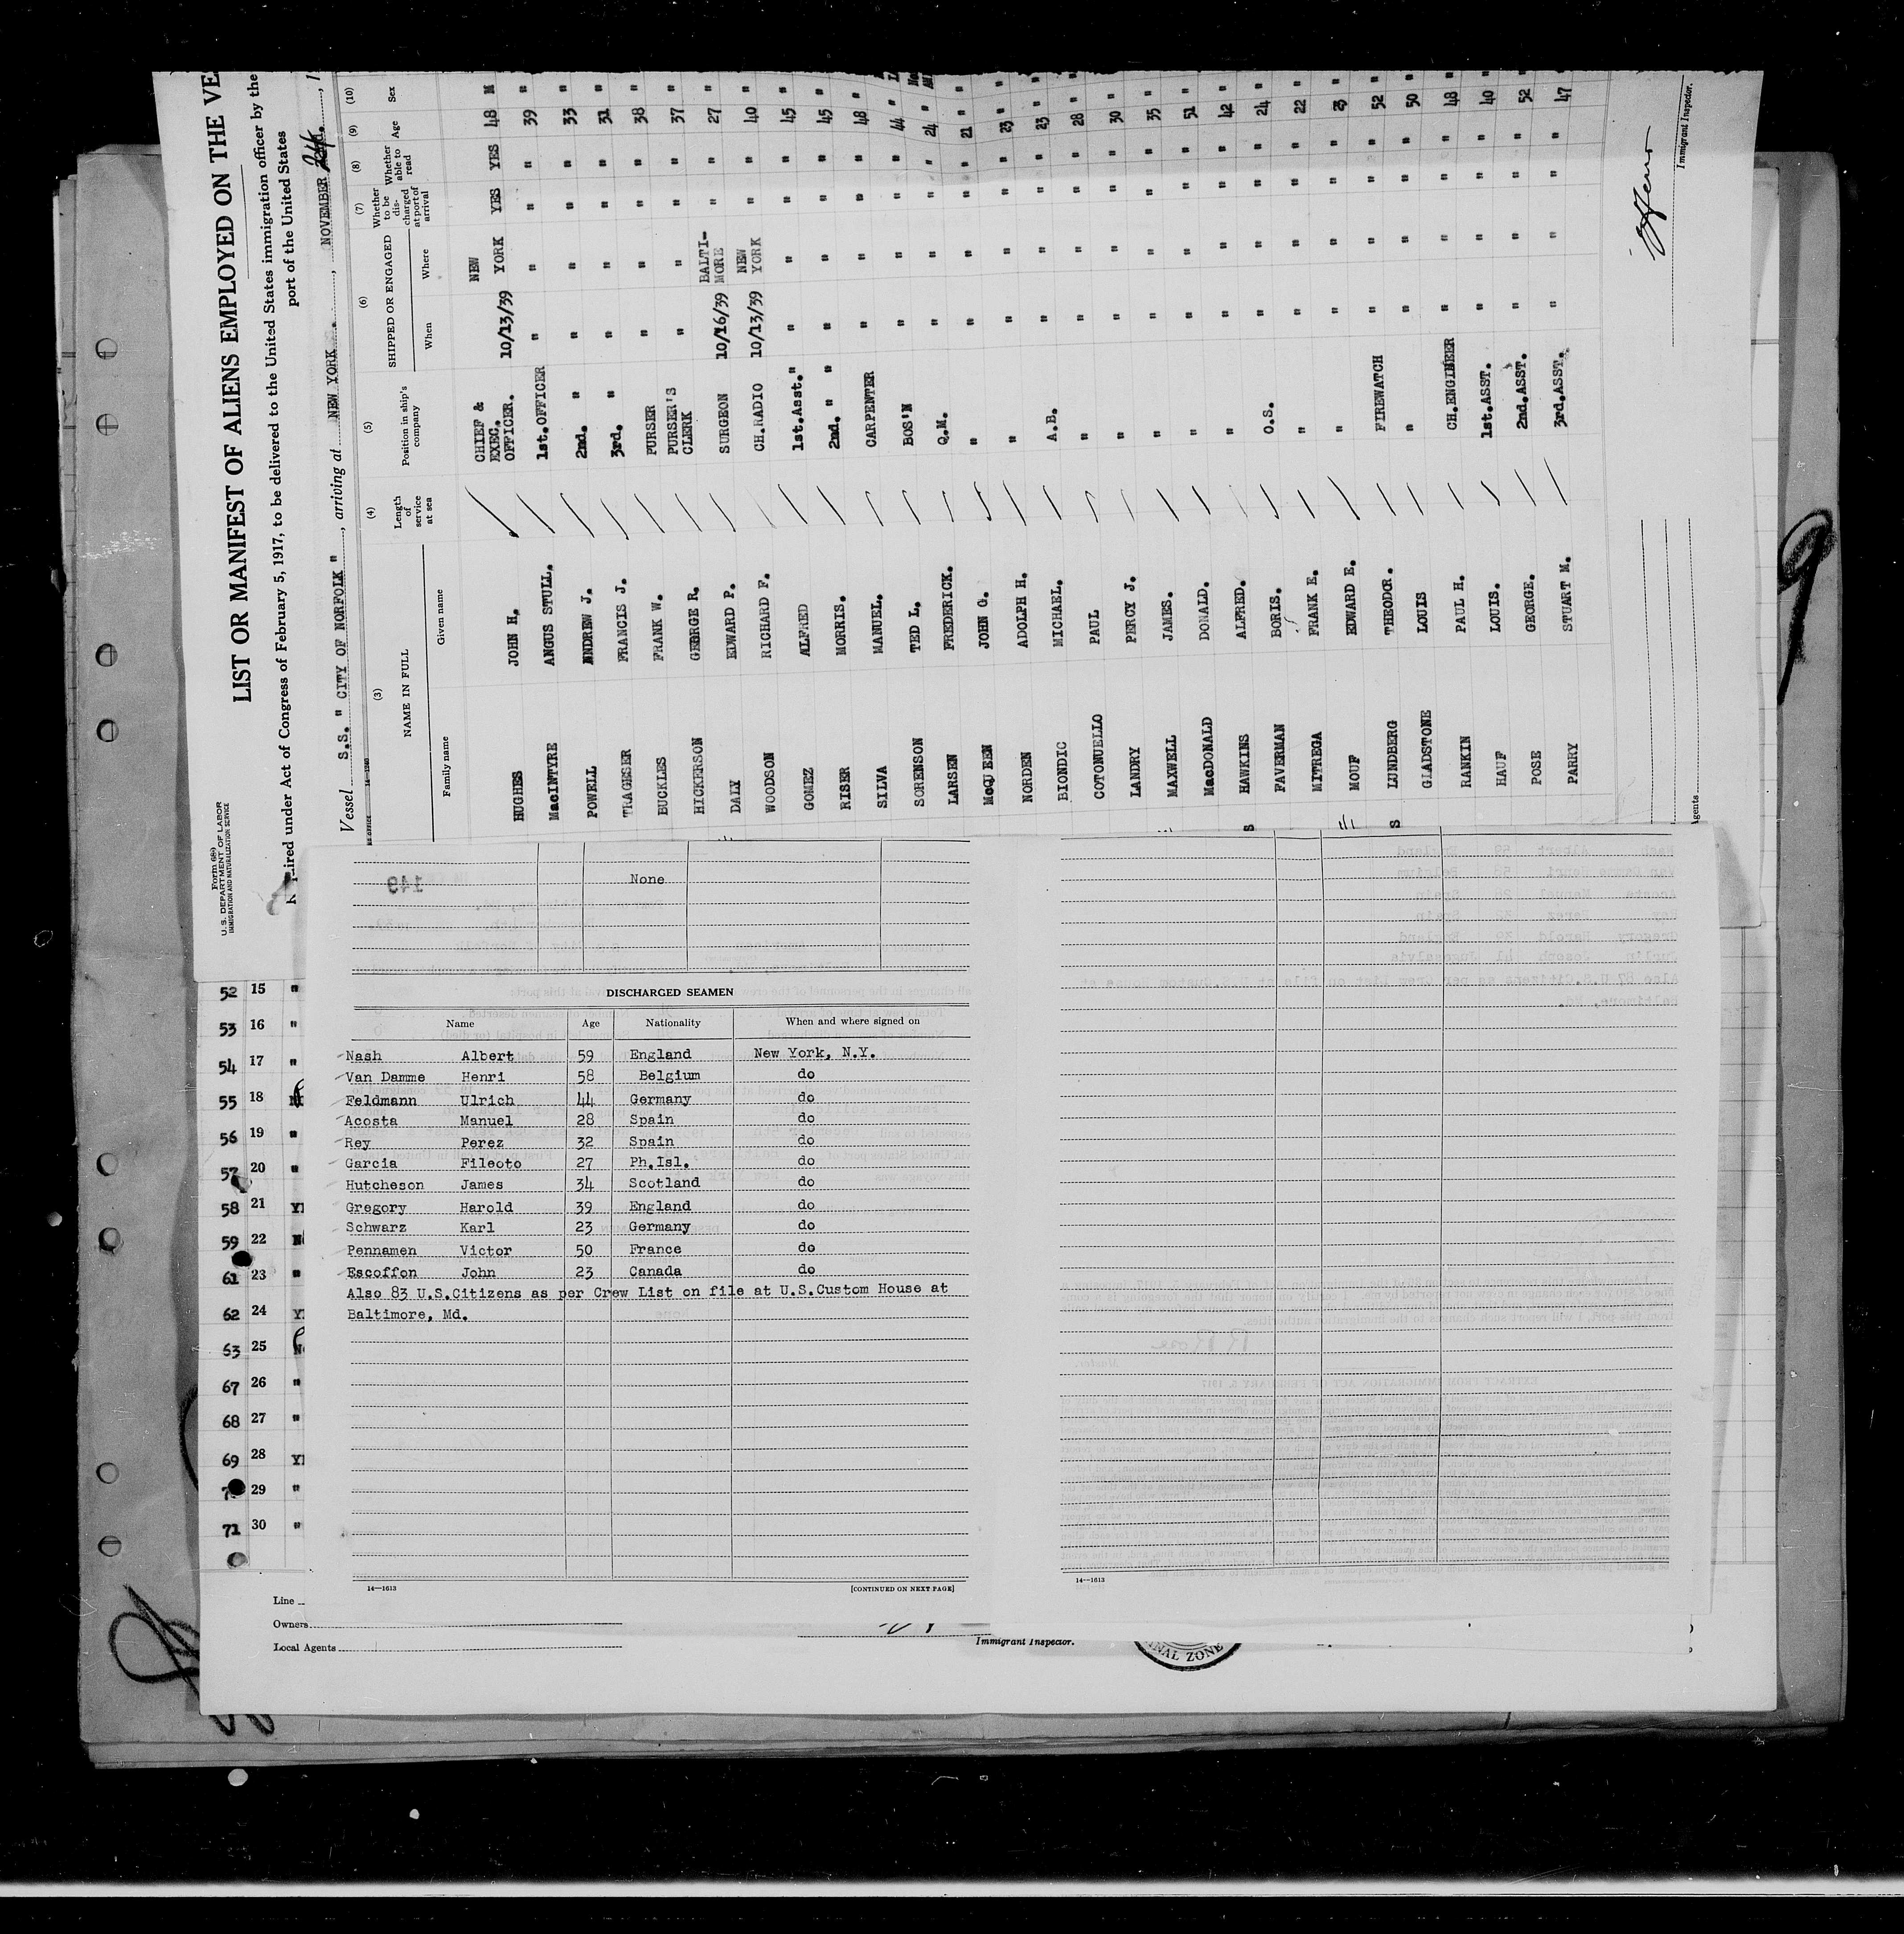 Form 689
U. S. DEPARTMENT OF LABOR
IMMIGRATION AND NATURALIZATION SERVICE
LIST OR MANIFEST OF ALIENS EMPLOYED ON THE VE
ired under Act of Congress of February 5, 1917, to be delivered to the United States immigration officer by the
port of the United States
Vessel S.S. " CITY OF NORFOLK ", arriving at NEW YORK, NOVEMBER
(3) (4) (5) (6) (7) (8) (9) (10)
NAME IN FULL Length of service at sea Position in ship's company SHIPPED OR ENGAGED Whether to be discharged at port of arrival Whether able to read Age Sex
Family name Given name When Where
HUGHES JOHN H. CHIEF & EXEC. OFFICER. 10/13/39 NEW YORK YES YES 48 M
MacINTYRE ANGUS STULL. 1st.OFFICER " " " " 39 "
POWELL ANDREW J. 2nd. " " " " " 33 "
TRAGESER FRANCIS J. 3rd. " " " " " 31 "
BUCKLES FRANK W. PURSER " " " " 38 "
HICKERSON GEORGE R. PURSER'S CLERK " " " " 37 "
DALY EDWARD P. SURGEON 10/16/39 BALTI- MORE " " 27 "
WOODSON RICHARD F. CH.RADIO 10/13/39 NEW YORK " " 40 "
GOMEZ ALFRED 1st.Asst." " " " " 45 "
RISER MORRIS. 2nd. " " " " " " 45 "
SILVA MANUEL. CARPENTER " " " " 48 "
SORENSON TED L. BOS'N " " " " 44 "
LARSEN FREDERICK. Q.M. " " " " 24 "
McQUEEN JOHN G. " " " " " 21 "
NORDEN ADOLPH H. " " " " " 23 "
BIONDIC MICHAEL. A.B. " " " " 23 "
COTONUELLO PAUL " " " " " 28 "
LANDRY PERCY J. " " " " " 30 "
MAXWELL JAMES. " " " " " 35 "
MacDONALD DONALD. " " " " " 51 "
HAWKINS ALFRED. " " " " " 42 "
FAVERMAN BORIS. O.S. " " " " 24 "
MITREGA FRANK E. " " " " " 22 "
MOUF EDWARD E. " " " " " 23 "
LUNDBERG THEODOR. FIREWATCH " " " " 52 "
GLADSTONE LOUIS " " " " " 50 "
RANKIN PAUL H. CH.ENGINEER " " " " 48 "
HAUF LOUIS. 1st.ASST. " " " " 40 "
POSE GEORGE. 2nd.ASST. " " " " 52 "
PARRY STUART M. 3rd.ASST. " " " " 47 "
Immigrant Inspector.
Agents
None
DISCHARGED SEAMEN
Name Age Nationality When and where signed on
Nash Albert 59 England New York, N.Y.
Van Damme Henri 58 Belgium do
Feldmann Ulrich 44 Germany do
Acosta Manuel 28 Spain do
Rey Perez 32 Spain do
Garcia Fileoto 27 Ph.Isl. do
Hutcheson James 34 Scotland do
Gregory Harold 39 England do
Schwarz Karl 23 Germany do
Pennamen Victor 50 France do
Escoffon John 23 Canada do
Also 83 U.S.Citizens as per Crew List on file at U.S.Custom House at
Baltimore, Md.
14—1613 [CONTINUED ON NEXT PAGE]
14—1613
52 15 "
53 16 "
54 17 "
55 18
56 19 "
57 20 "
58 21
59 22
61 23 "
62 24
63 25
67 26 "
68 27 "
69 28
29 "
71 30 "
Line
Owners
Local Agents
Immigrant Inspector.
CANAL ZONE